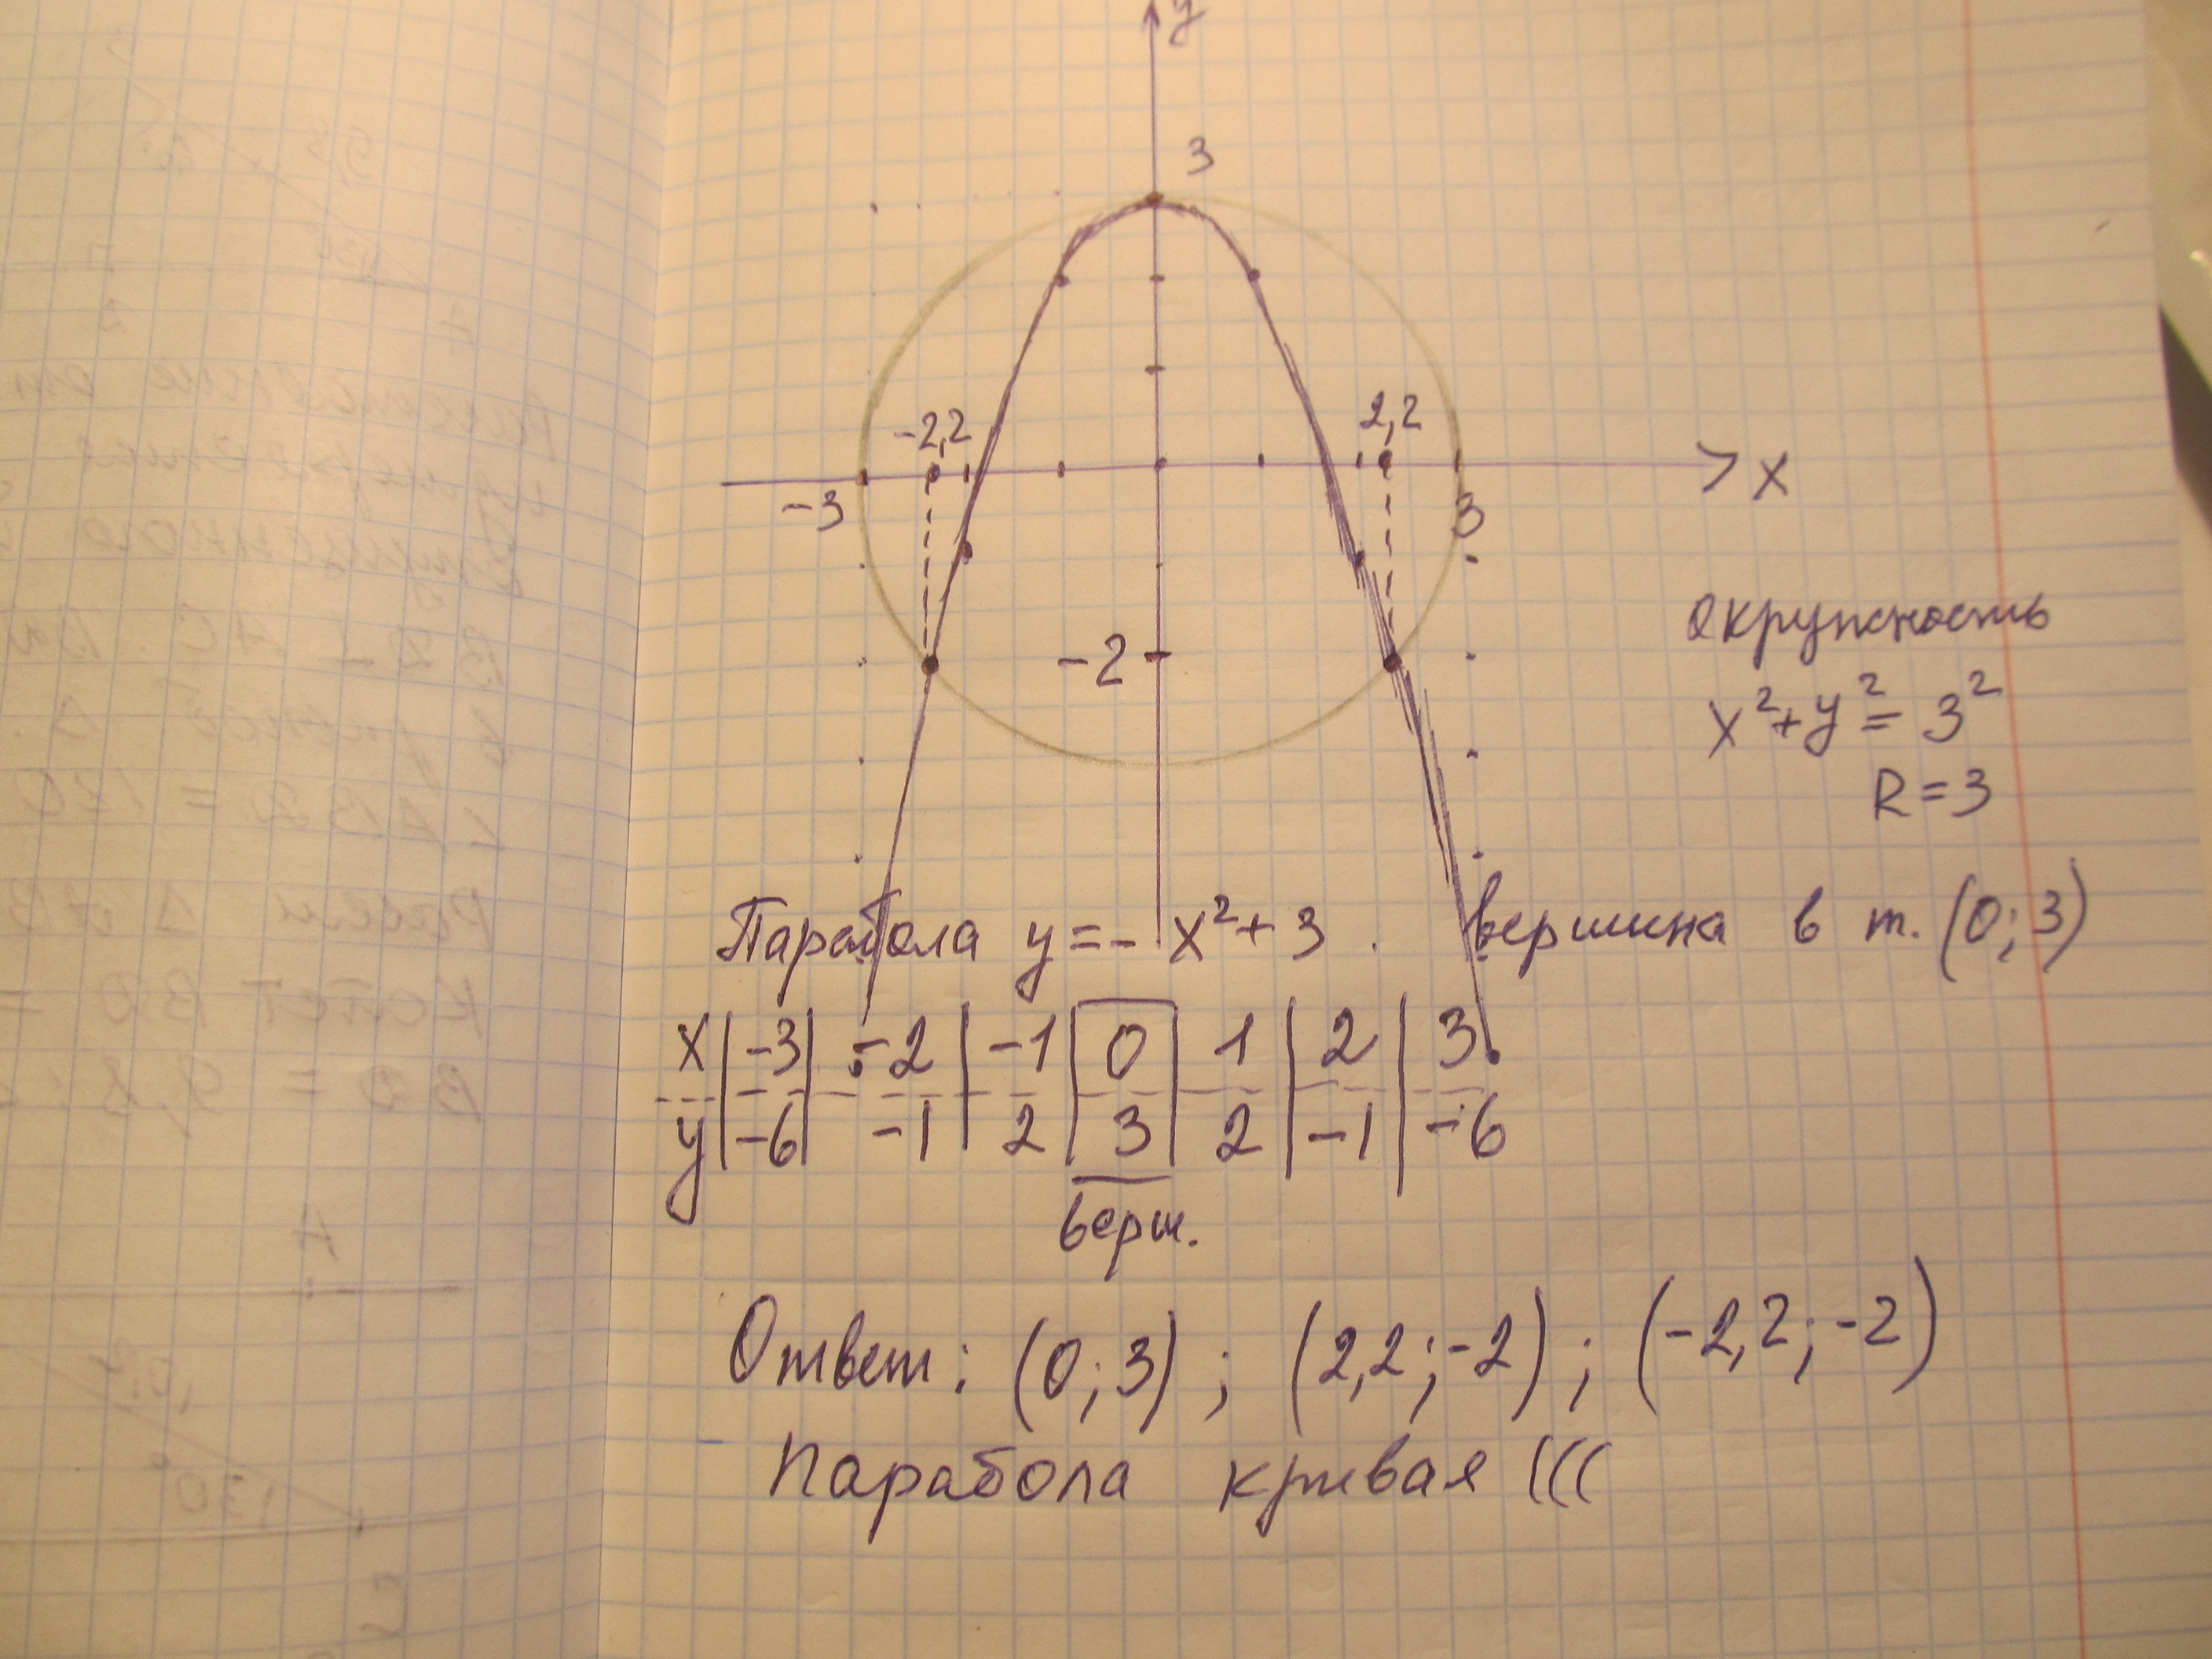 y
3
-2,2 2,2
-3 3 x
-2
окружность
x²+y²=3²
R=3
Парабола y=-x²+3. вершина в т. (0;3)
x|-3| -2|-1|0|1|2|3
y|-6| -1|2|3|2|-1|-6
верш.
Ответ: (0;3); (2,2;-2); (-2,2;-2)
Парабола кривая (((